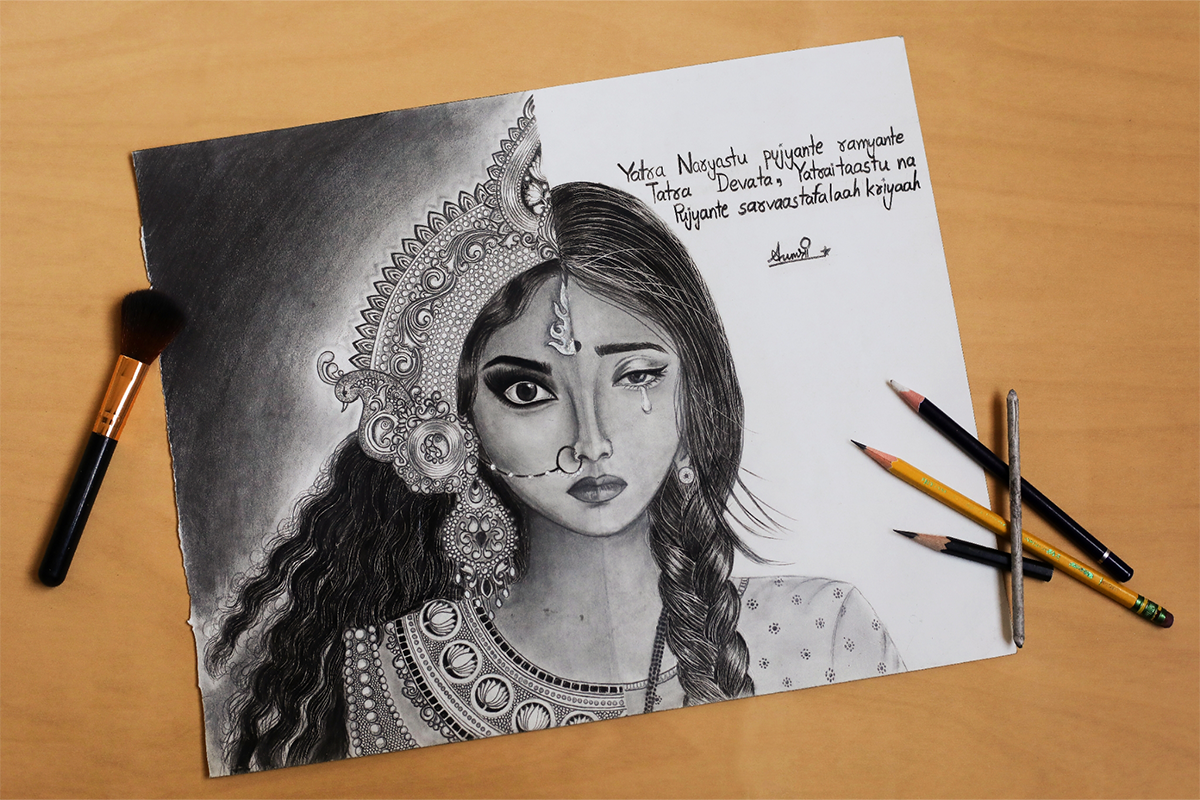 Yatra Naryastu pujyante ramyante
Tatra Devata, Yatraitaastu na
Pujyante sarvaastafalaah kriyaah